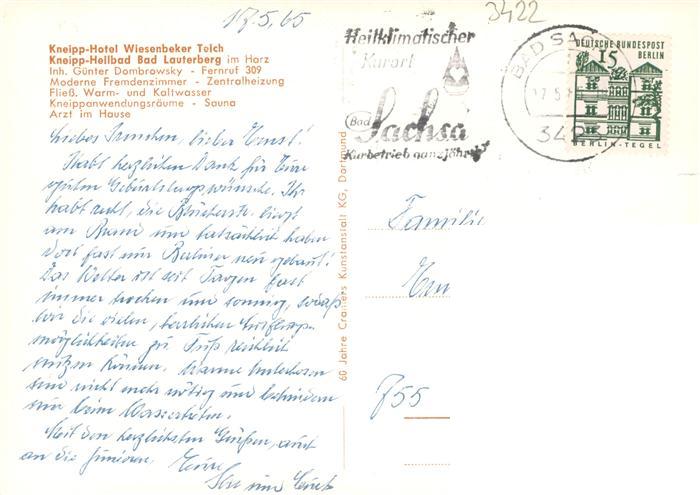 17.5.65
3422
Kneipp-Hotel Wiesenbeker Teich
Kneipp-Heilbad Bad Lauterberg im Harz
Inh. Günter Dombrowsky - Fernruf 309
Moderne Fremdenzimmer - Zentralheizung
Fließ. Warm- und Kaltwasser
Kneippanwendungsräume - Sauna
Arzt im Hause
Heilklimatischer
Kurort
Bad Sachsa
Kurbetrieb ganzjährig
BAD SACHSA
342
DEUTSCHE BUNDESPOST
BERLIN
15
BERLIN-TEGEL
Liebes lieber Ernst!
Habt herzlichen Dank für Eure
guten Geburtstagswünsche. Ihr
habt recht, die liegt
am und tatsächlich haben
dort fast nur Berliner neu gebaut!
Das Wetter ist seit Tagen fast
immer trocken und sonnig, sodaß
wir die vielen, herrlichen Ausflugs-
möglichkeiten zu Fuß reichlich
nützen können. Warme Unterhosen
sind nicht mehr nötig und behindern
nur beim Wassertreten.
Mit den herzlichsten Grüßen, auch
an die Junioren. Eure
und
60 Jahre Cramers Kunstanstalt KG, Dortmund
Familie
755